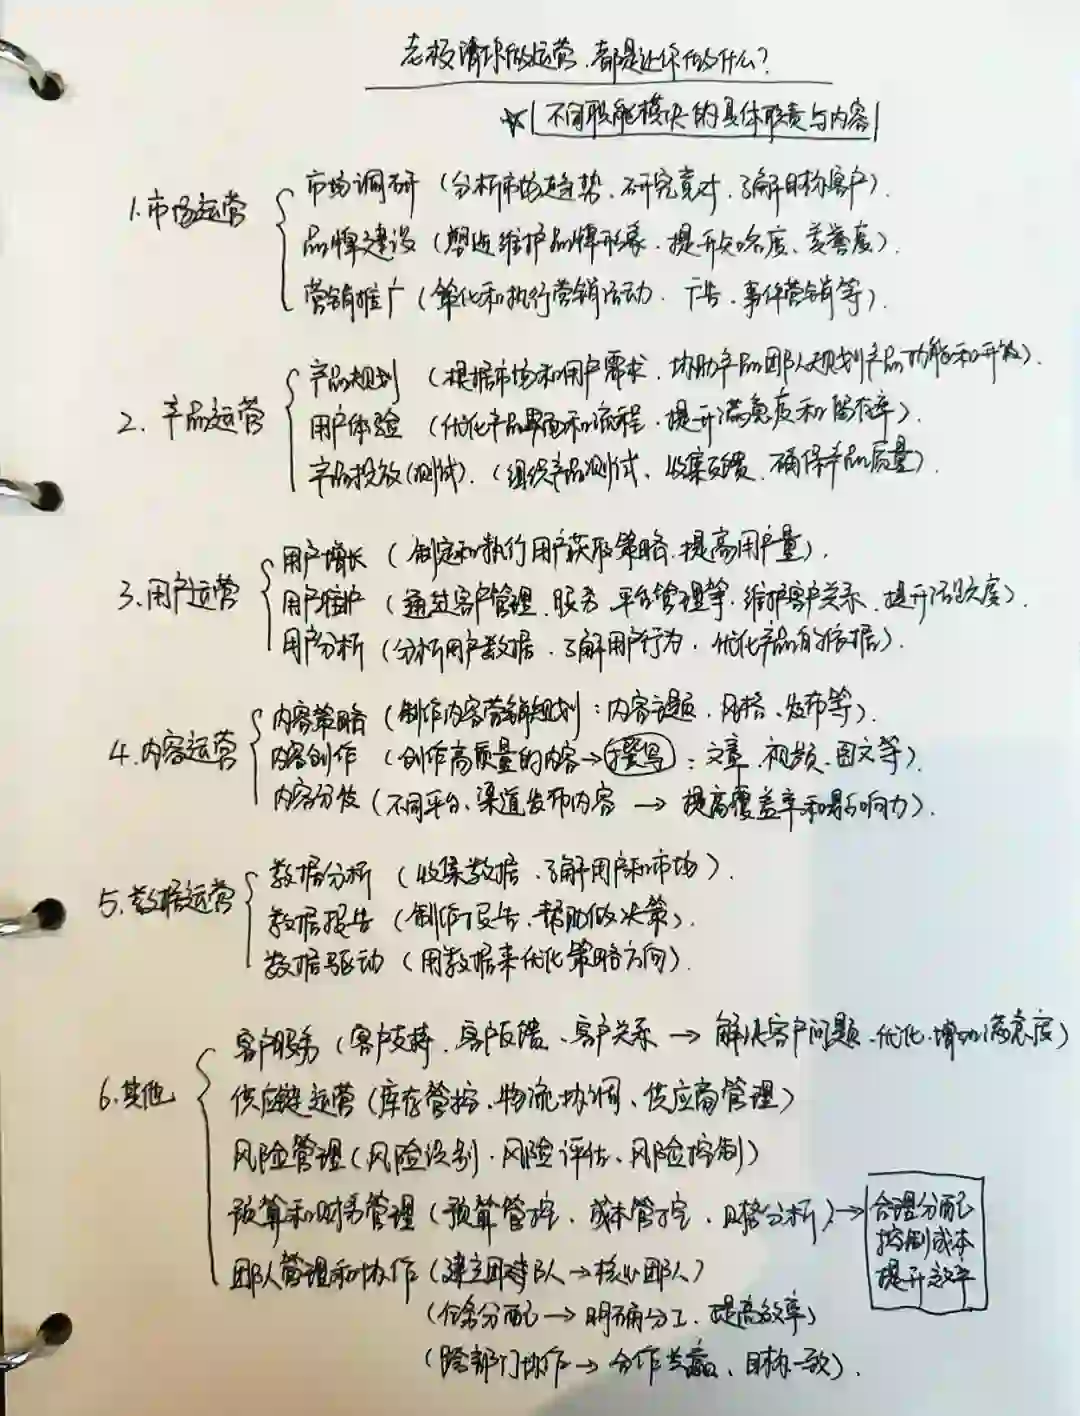 老板请你做运营,都是让你做什么?
☆ 不同职能模块的具体职责与内容
1.市场运营
市场调研(分析市场趋势、研究竞对、了解目标客户).
品牌建设(塑造维护品牌形象、提升知名度、美誉度).
营销推广(策化和执行营销活动、广告、事件营销等).
2.产品运营
产品规划(根据市场和用户需求、协助产品团队规划产品功能和开发).
用户体验(优化产品界面和流程、提升满意度和留存率).
产品投放(测试).(组织产品测试、收集反馈、确保产品质量).
3.用户运营
用户增长(制定和执行用户获取策略、提高用户量).
用户维护(通过客户管理、服务、平台管理等、维护客户关系、提升活跃度).
用户分析(分析用户数据、了解用户行为、优化产品有依据).
4.内容运营
内容策略(制作内容营销规划:内容主题、风格、发布等).
内容创作(创作高质量的内容→撰写:文章、视频、图文等).
内容分发(不同平台、渠道发布内容→提高覆盖率和影响力).
5.数据运营
数据分析(收集数据、了解用户和市场).
数据报告(制作报告、帮助做决策).
数据驱动(用数据来优化策略方向).
6.其他
客户服务(客户支持、客户反馈、客户关系→解决客户问题、优化、增加满意度)
供应链运营(库存管控、物流协调、供应商管理)
风险管理(风险识别、风险评估、风险控制)
预算和财务管理(预算管控、成本管控、财务分析)→
合理分配
控制成本
提升效率
团队管理和协作(建立团队→核心团队)
(任务分配→明确分工、提高效率)
(跨部门协作→合作共赢、目标一致).